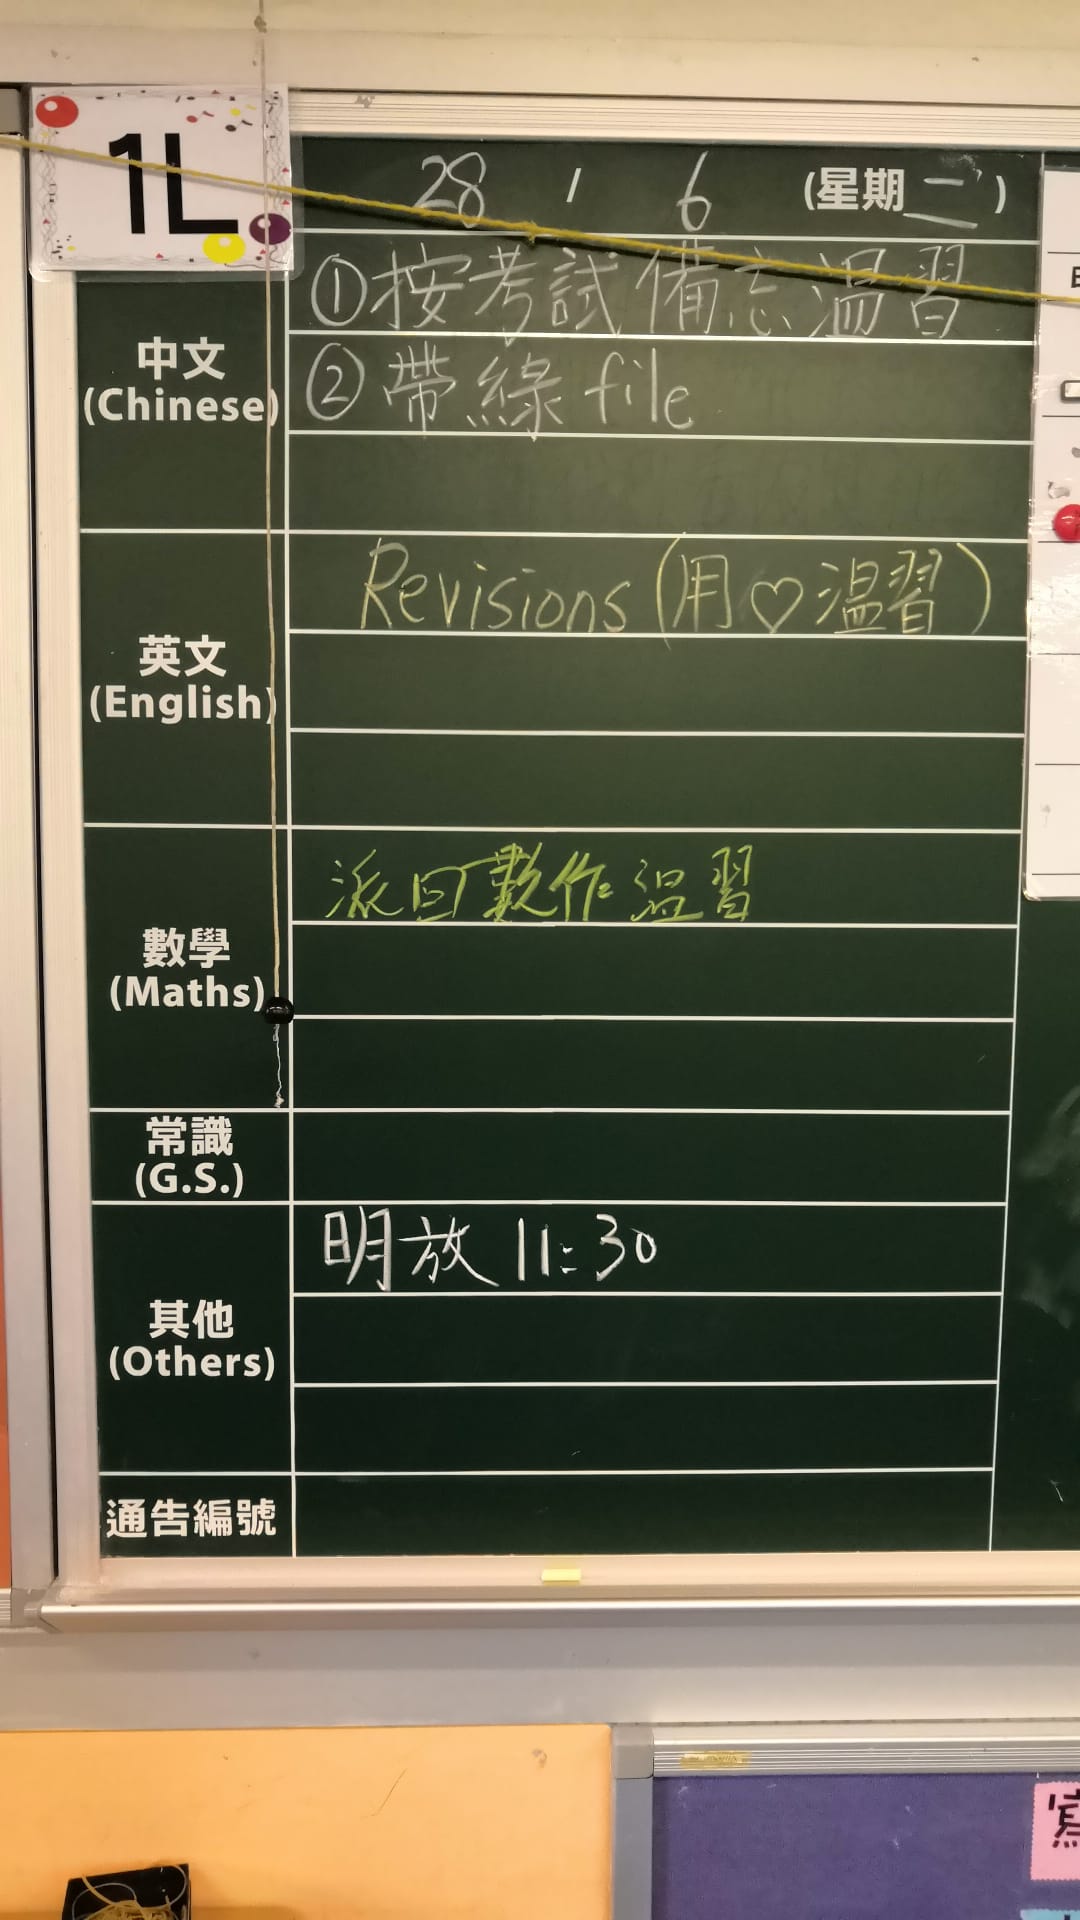 1L
28 / 6 (星期二)
中文
(Chinese)
①按考試備忘溫習
②帶綠file
英文
(English)
Revisions (用♡溫習)
數學
(Maths)
派回數作溫習
常識
(G.S.)
其他
(Others)
明放 11:30
通告編號
寫